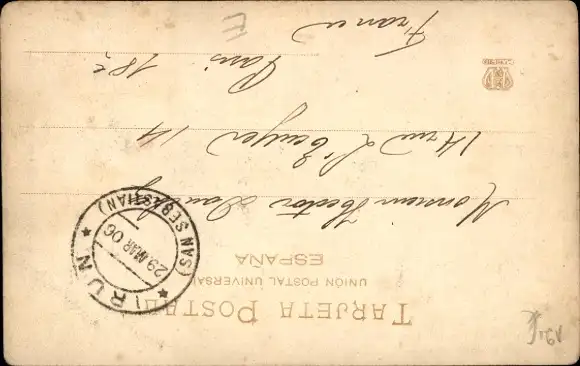 TARJETA POSTAL
UNIÓN POSTAL UNIVERSAL
ESPAÑA
IRUN
29 MAR 06
(SAN SEBASTIAN)
Monsieur Hector
14 rue L'Ecuyer 14
Paris 18e
France